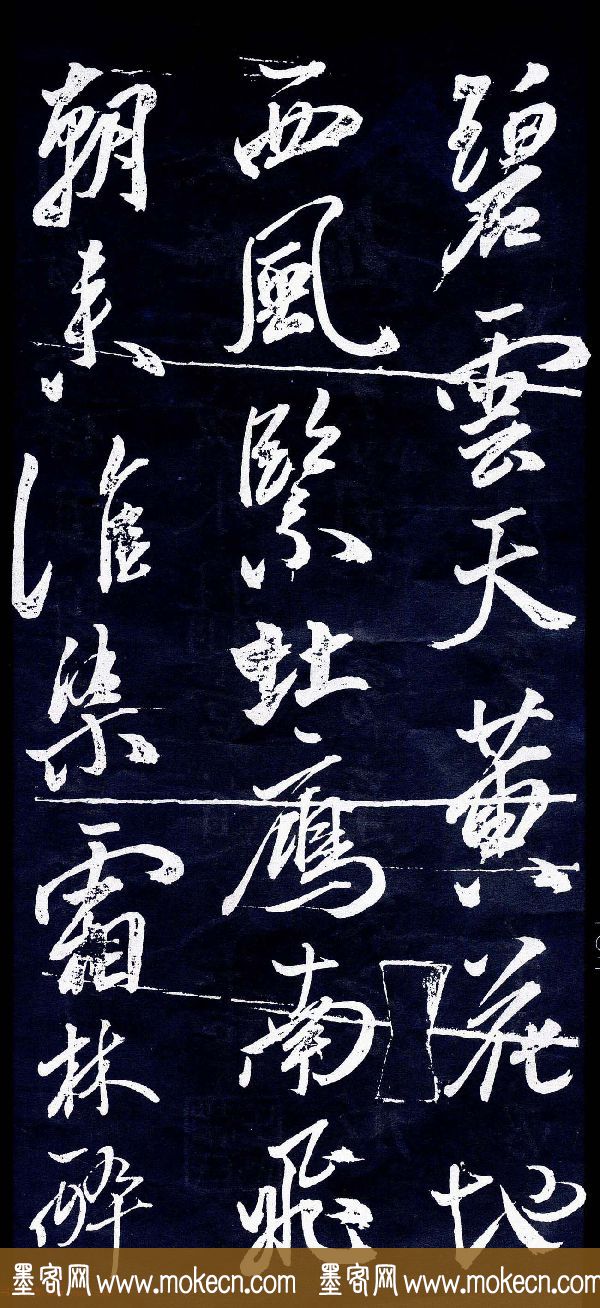 碧雲天黄花地
西風緊北鴈南飛
朝来誰染霜林醉
墨客网 www.mokecn.com 墨客网 www.mokecn.com